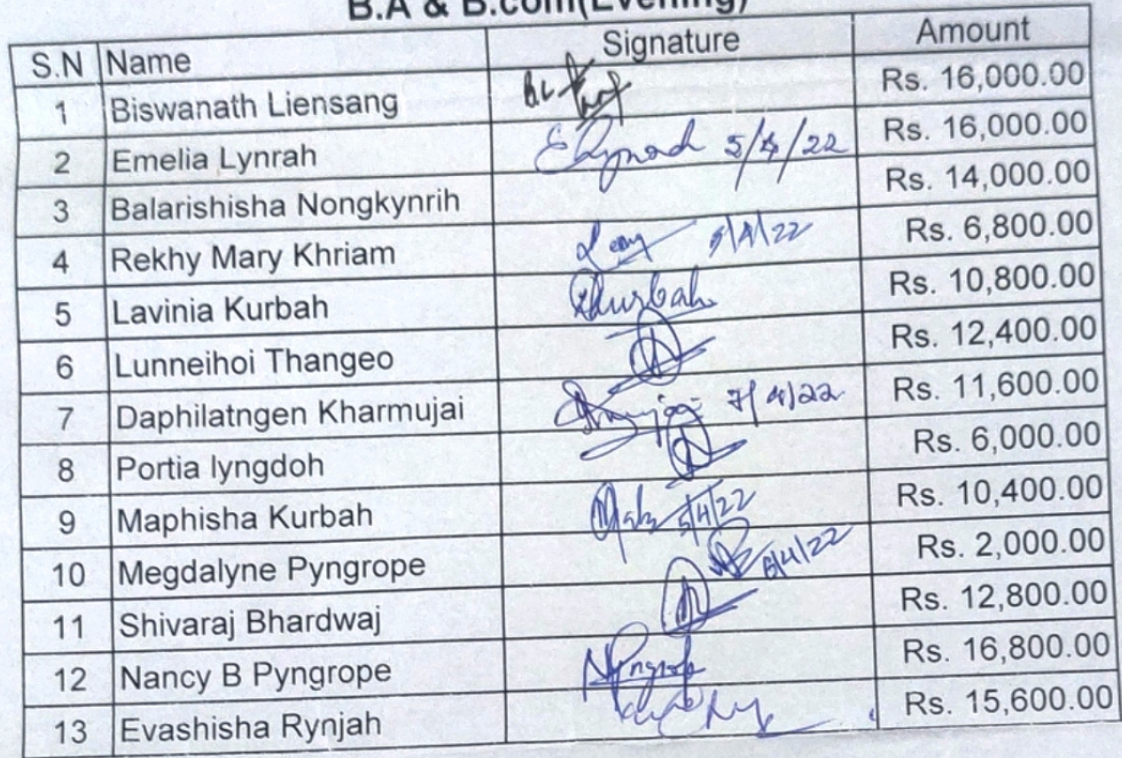 B.A & B.com(Evening)
S.N Name Signature Amount
1 Biswanath Liensang Rs. 16,000.00
2 Emelia Lynrah 5/4/22 Rs. 16,000.00
3 Balarishisha Nongkynrih Rs. 14,000.00
4 Rekhy Mary Khriam 5/4/22 Rs. 6,800.00
5 Lavinia Kurbah Kurbah Rs. 10,800.00
6 Lunneihoi Thangeo Rs. 12,400.00
7 Daphilatngen Kharmujai 7/4/22 Rs. 11,600.00
8 Portia lyngdoh Rs. 6,000.00
9 Maphisha Kurbah 5/4/22 Rs. 10,400.00
10 Megdalyne Pyngrope 5/4/22 Rs. 2,000.00
11 Shivaraj Bhardwaj Rs. 12,800.00
12 Nancy B Pyngrope Rs. 16,800.00
13 Evashisha Rynjah Rs. 15,600.00